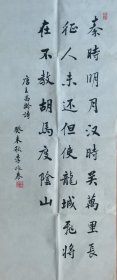 秦時明月汉時关萬里長
征人未還但使龍城飛將
在不教胡馬度陰山
唐王昌齡詩
癸未秋李